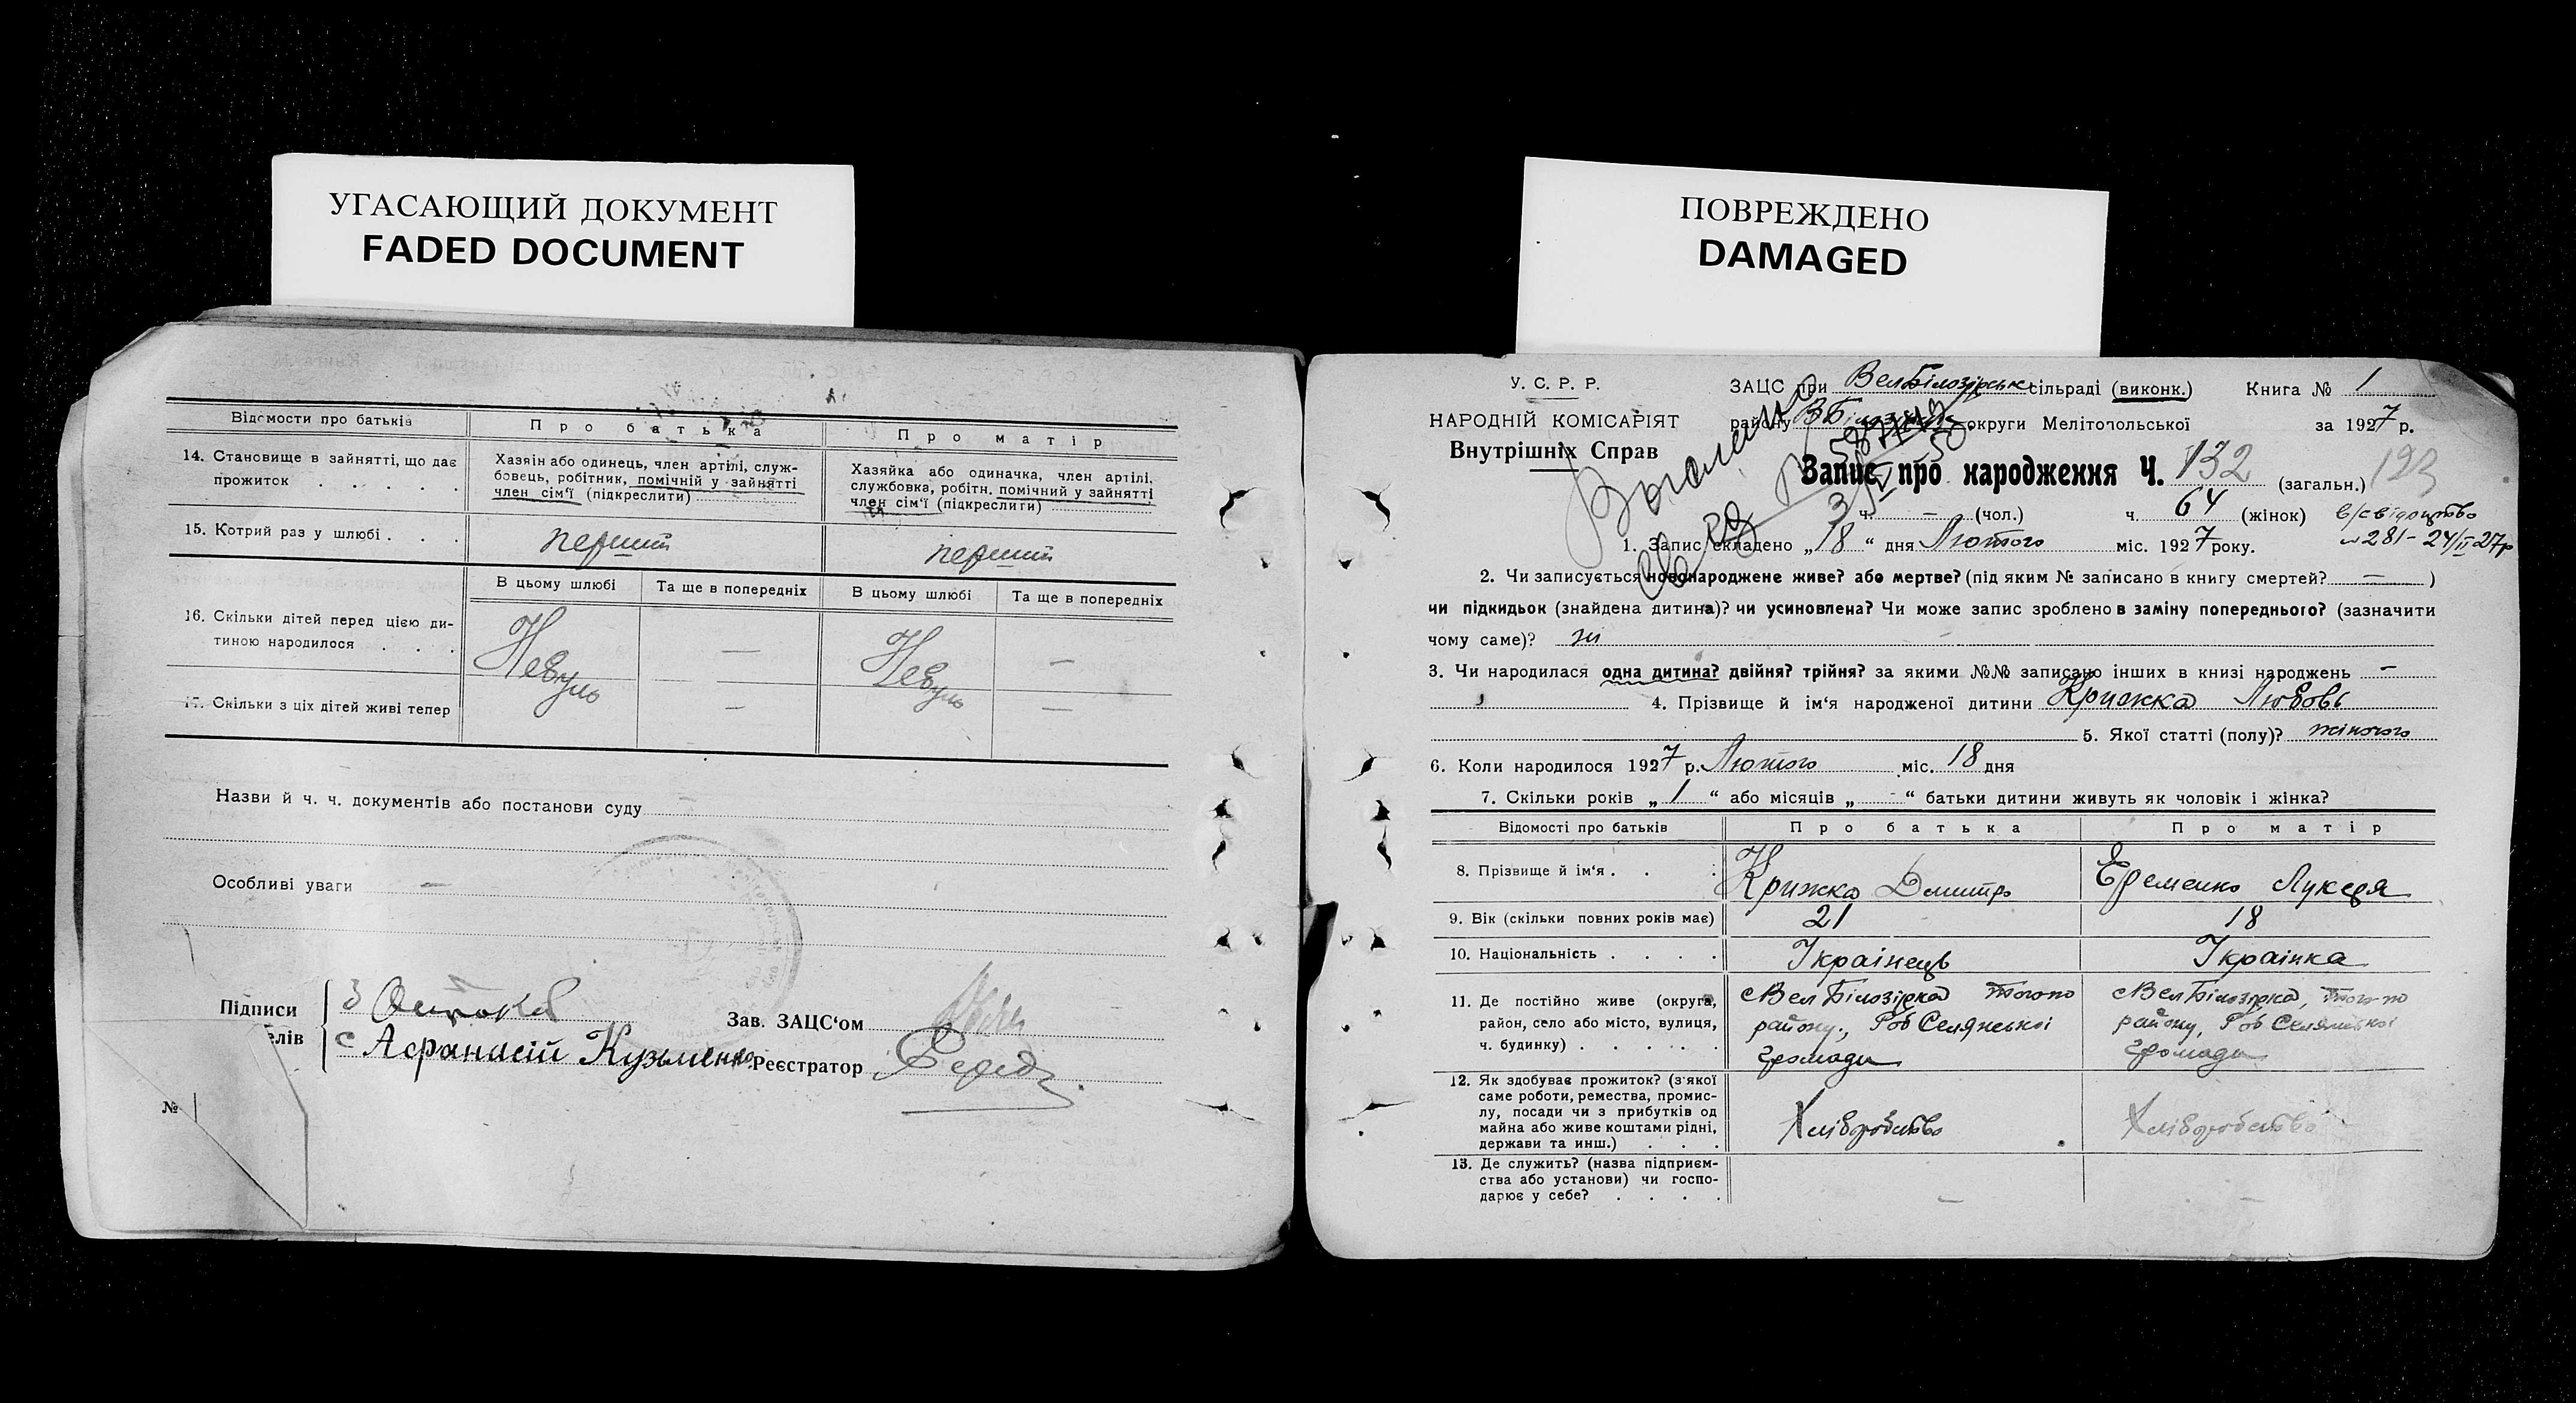 УГАСАЮЩИЙ ДОКУМЕНТ
FADED DOCUMENT
Відомости про батьків
Про батька
Про матір
14. Становище в зайнятті, що дає прожиток . . . . .
Хазяін або одинець, член артілі, служ-
бовець, робітник, помічній у зайнятті
член сім'ї (підкреслити)
Хазяйка або одиначка, член артілі,
службовка, робітн. помічний у зайнятті
член сім'ї (підкреслити)
15. Котрий раз у шлюбі . . .
перший
перший
В цьому шлюбі
Та ще в попередніх
В цьому шлюбі
Та ще в попередніх
16. Скільки дітей перед цією ди-
тиною народилося . . .
— —
17. Скільки з ціх дітей живі тепер
— —
Назви й ч. ч. документів або постанови суду —
Особливі уваги —
Підписи
елів
Зав. ЗАЦС‘ом
с Афанасій Кузьменко
Реєстратор
№
ПОВРЕЖДЕНО
DAMAGED
У. С. Р. Р.
НАРОДНІЙ КОМІСАРІЯТ
Внутрішніх Справ
ЗАЦС при ВелБілозірськ сільраді (виконк.) Книга № 1
району округи Мелітопольської за 1927 р.
Запис про народження Ч. 132 (загальн.) 123
ч. — (чол.) ч. 64 (жінок)
281 - 24/II 27р
1. Запис складено „18“ дня Лютого міс. 1927 року.
2. Чи записується новонароджене живе? або мертве? (під яким № записано в книгу смертей? — )
чи підкидьок (знайдена дитина)? чи усиновлена? Чи може запис зроблено в заміну попереднього? (зазначити
чому саме)?
3. Чи народилася одна дитина? двійня? трійня? за якими №№ записано інших в книзі народжень —
4. Прізвище й ім‘я народженої дитини Крижка Любовь
5. Якої статті (полу)? жіночого
6. Коли народилося 1927 р. Лютого міс. 18 дня
7. Скільки років „1“ або місяців „-“ батьки дитини живуть як чоловік і жінка?
Відомості про батьків
Про батька
Про матір
8. Прізвище й ім‘я . . .
Крижка Дмитро
Еременко Лукеря
9. Вік (скільки повних років має)
21
18
10. Національність . . . .
Українець
Українка
11. Де постійно живе (округа,
район, село або місто, вулиця,
ч. будинку) . . . . .
с Вел Білозірка
району, Роб Селянської
громади
с Вел Білозірка,
району, Роб Селянської
громади
12. Як здобуває прожиток? (з'якої
саме роботи, ремества, промис-
лу, посади чи з прибутків од
майна або живе коштами рідні,
держави та инш.) . . .
Хліборобство
Хліборобство
13. Де служить? (назва підприєм-
ства або установи) чи госпо-
дарює у себе? . . . .
—
—